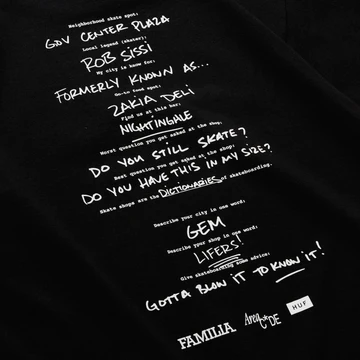 Neighborhood skate spot:
GOV CENTER PLAZA
Local legend (skater):
ROB SISSI
My city is know for:
FORMERLY KNOWN AS...
Go-to food spot:
ZAKIA DELI
Find us at this bar:
NIGHTINGALE
Worst question you get asked at the shop:
DO YOU STILL SKATE?
Best question you get asked at the shop:
DO YOU HAVE THIS IN MY SIZE?
Skate shops are the DICTIONARIES of skateboarding.
Describe your city in one word:
GEM
Describe your shop in one word:
LIFERS!
Give skateboarding some advice:
GOTTA BLOW IT TO KNOW IT!
FAMILIA
AreaCODE
HUF